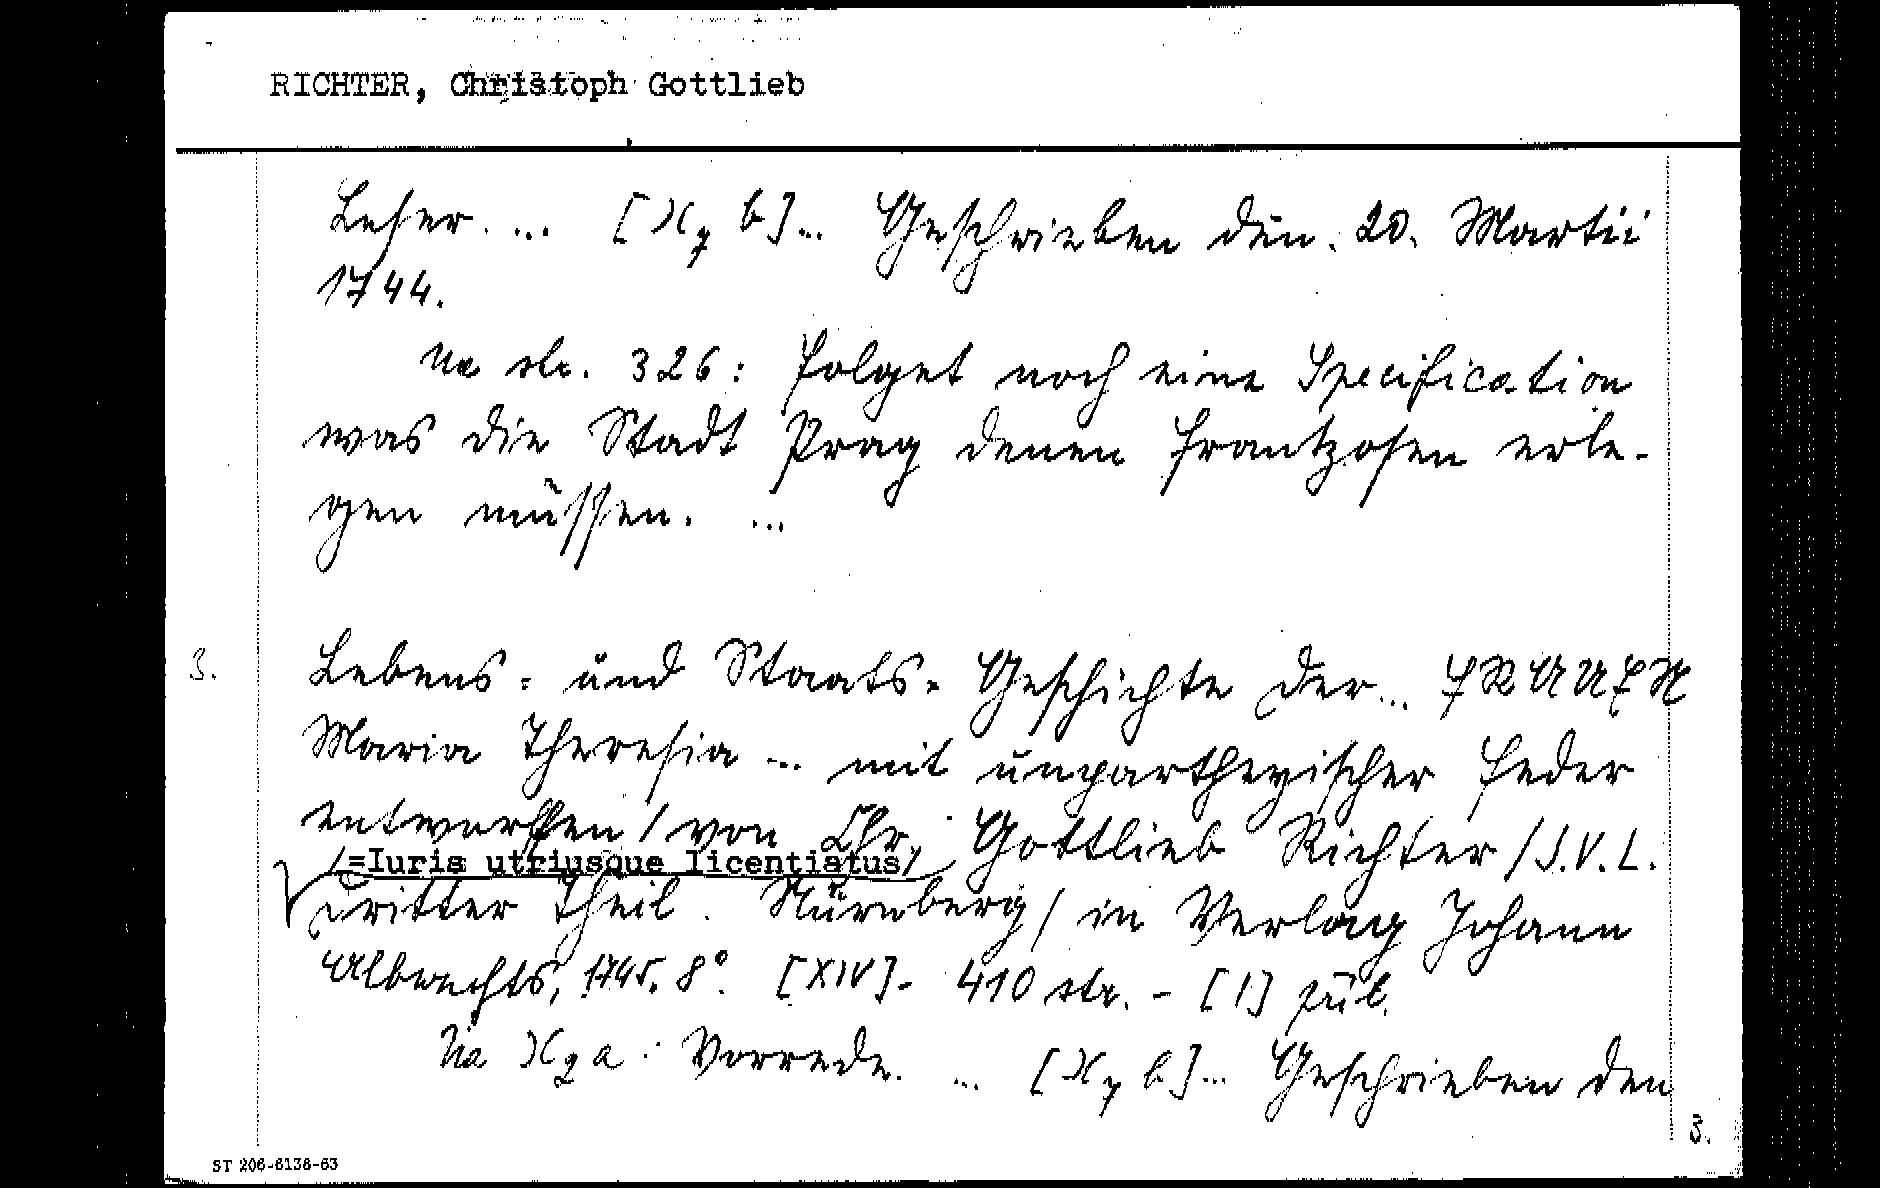 RICHTER, Christoph Gottlieb
Leser. ... [)(7 b]... Geschrieben den. 20. Martii
1744.
Na str. 326: Folget noch eine Specification
was die Stadt Prag denen Frantzosen erle-
gen müssen. ...
3. Lebens- und Staats- Geschichte Der... FRAUEN
Maria Theresia ... mit unpartheyischer Feder
entworffen / von Chr. Gottlieb Richter / J.V.L.
/=Iuris utriusque licentiatus/
Dritter Theil. Nürnberg / in Verlag Johann
Albrechts, 1745. 8°. [XIV]- 410 str. - [1] příl.
Na )(2 a: Vorrede. ... [)(7 b]... Geschrieben den
3.
ST 206-6136-63